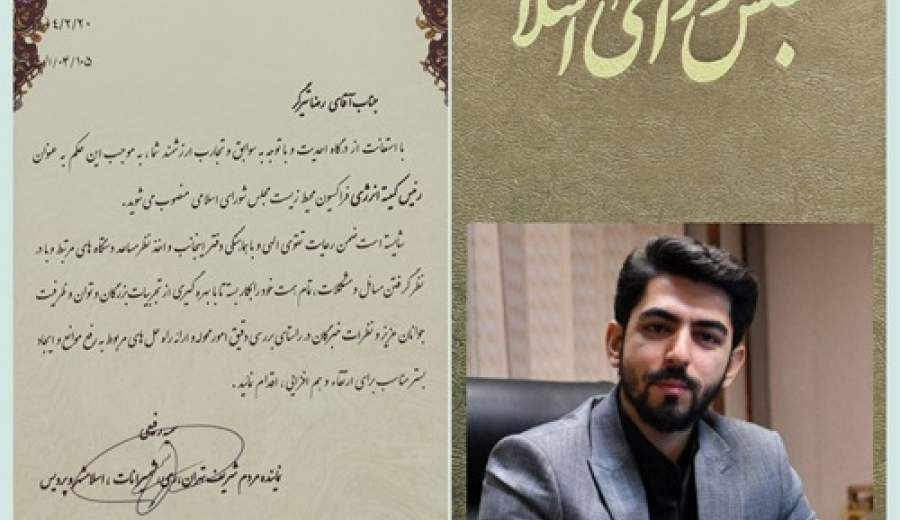 ۴/۲/۲۰
۰۳/۱۰۵/
جناب آقای رضا تیزگر
با استعانت از درگاه احدیت و با توجه به سوابق و تجارب ارزشمند شما، به موجب این حکم به عنوان
رئیس کمیته انرژی فراکسیون محیط زیست مجلس شورای اسلامی منصوب می شوید.
شایسته است ضمن رعایت تقوی الهی و با هماهنگی دفتر اینجانب و اخذ نظر مساعد دستگاه های مرتبط و با در
نظر گرفتن مسائل و مشکلات، تمام همت خود را بکار بسته تا با بهره گیری از تجربیات بزرگان و توان و ظرفیت
جوانان عزیز و نظرات خبرگان در راستای بررسی دقیق امور محوله و ارائه راه حل های مربوط به رفع موانع و ایجاد
بستر مناسب برای ارتقاء و هم افزایی، اقدام نمائید.
نماینده مردم شریف تهران، ری، شمیرانات، اسلامشهر و پردیس
مجلس شورای اسلا